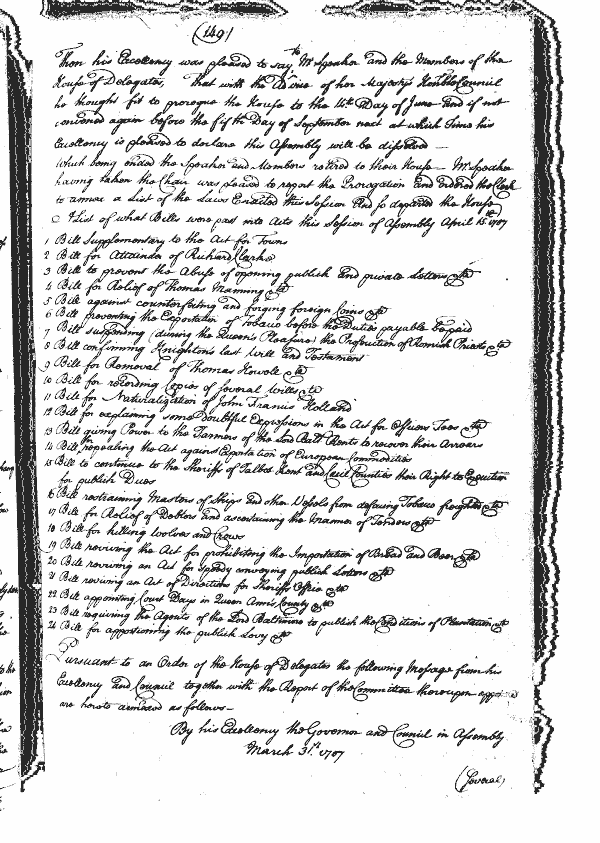 (149)
Then his Excellency was pleased to say to Mr Speaker and the Members of the
House of Delegates, That with the Advice of her Majestys Honble Council
he thought fit to prorogue the House to the 14th Day of June and if not
convened again before the fifth Day of September next at which Time his
Excellency is pleased to declare this Assembly will be dissolved —
Which being ended the Speaker and Members retired to their House — Mr Speaker
having taken the Chair was pleased to report the Prorogation and ordered the Clerk
to annex a List of the Laws Enacted this Session And so departed the House
A List of what Bills were past into Acts this Session of Assembly April 15th 1707
1 Bill Supplementary to the Act for Towns
2 Bill for Attainder of Richard Clarke
3 Bill to prevent the Abuse of opening publick and private Letters &ca
4 Bill for Relief of Thomas Manning &ca
5 Bill against counterfeiting and forging foreign Coins &ca
6 Bill preventing the Exportation of Tobacco before the Duties payable be paid
7 Bill suspending (during the Queen's Pleasure) the Prosecution of Romish Priests &ca
8 Bill confirming Knighton's last Will and Testament
9 Bill for Removal of Thomas Howell &ca
10 Bill for recording Copies of several Wills &ca
11 Bill for Naturalization of John Francis Holland
12 Bill for explaining some doubtful Expressions in the Act for Officers Fees &ca
13 Bill giving Power to the Farmers of the Lord Balt Rents to recover their Arrears
14 Bill for repealing the Act against Exportation of European Commodities
15 Bill to continue to the Sheriffs of Talbot Kent and Cecil Counties their Right to Execution
for publick Dues
16 Bill restraining Masters of Ships and other Vessels from defacing Tobacco freighted &ca
17 Bill for Relief of Debtors and ascertaining the Manner of Tenders &ca
18 Bill for killing Wolves and Crows
19 Bill reviving the Act for prohibiting the Importation of Bread and Beer &ca
20 Bill reviving an Act for speedy conveying publick Letters &ca
21 Bill reviving an Act of Directions for Sheriffs Office &ca
22 Bill appointing Court Days in Queen Ann's County &ca
23 Bill requiring the Agents of the Lord Baltimore to publish the Conditions of Plantation &ca
24 Bill for apportioning the publick Levy &ca
Pursuant to an Order of the House of Delegates the following Message from his
Excellency and Council together with the Report of the Committee thereupon
are hereto annexed as follows —
By his Excellency the Governor and Council in Assembly
March 31st 1707
(Several)